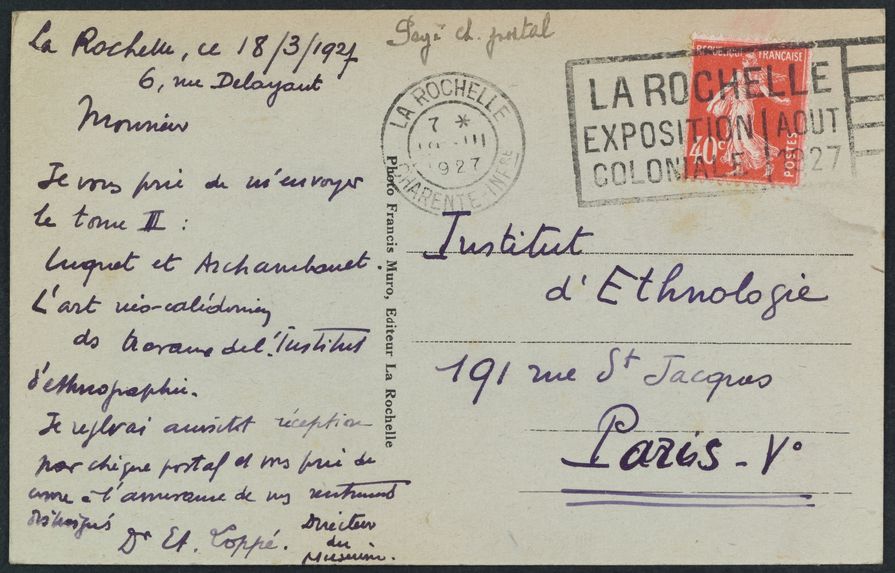 La Rochelle, ce 18/3/1927
6, rue Delayant
Monsieur
Je vous prie de m'envoyer
le tome III :
Luquet et Archambault.
L'art néo-calédonien
ds travaux de l'Institut
d'ethnographie.
Je réglerai aussitôt réception
par chèque postal et vous prie de
croire à l'assurance de mes sentiments
distingués
Dr Et. Loppé.
Directeur
du
Museum.
Payé ch. postal
LA ROCHELLE
7 *
III
1927
CHARENTE-INFRE
LA ROCHELLE
EXPOSITION
COLONIALE
AOUT
1927
REPUBLIQUE FRANÇAISE
40c
POSTES
Photo Francis Muro, Editeur La Rochelle
Institut
d'Ethnologie
191 rue St Jacques
Paris - V°